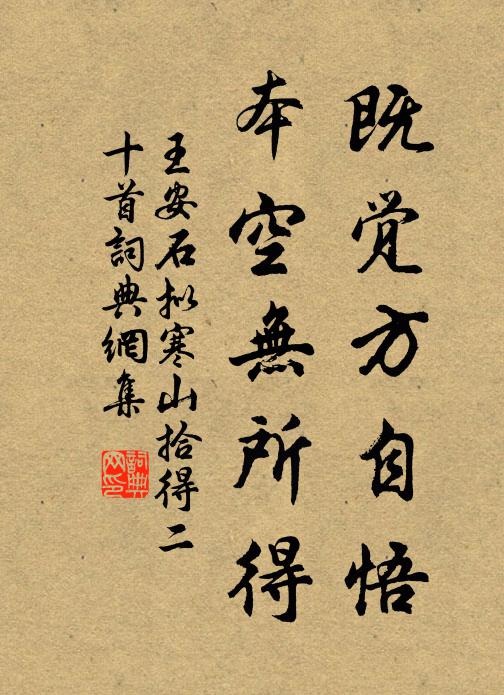 既觉方自悟
本空無所得
王安石拟寒山拾得二
十首詞典網集
詞典
网印